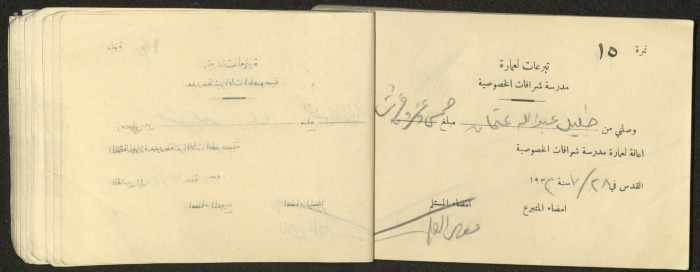 نمرة ١٥
تبرعات لعمارة
مدرسة شرافات الخصوصية
وصلني من خليل عبدالله عثمان مبلغ خمسة عشر قرش
اعانة لعمارة مدرسة شرافات الخصوصية
القدس في ٢٨ / ٧ سنة ١٩٣٢
امضاء المتبرع امضاء المستلم